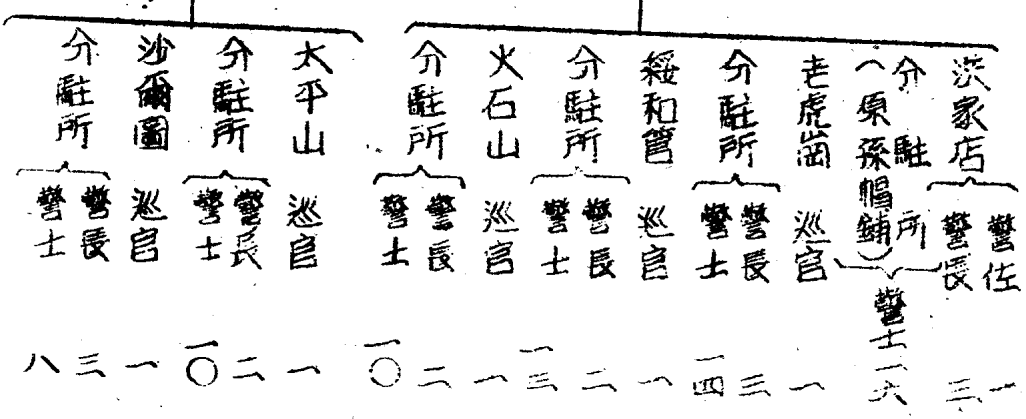 洪家店
分駐所
(原孫帽鋪)
警佐 一
警長 三
警士 一六
老虎崗
分駐所
巡官 一
警長 三
警士 一四
綏和管
分駐所
巡官 一
警長 二
警士 一三
火石山
分駐所
巡官 一
警長 二
警士 一〇
太平山
分駐所
巡官 一
警長 二
警士 一〇
沙爾圖
分駐所
巡官 一
警長 三
警士 八